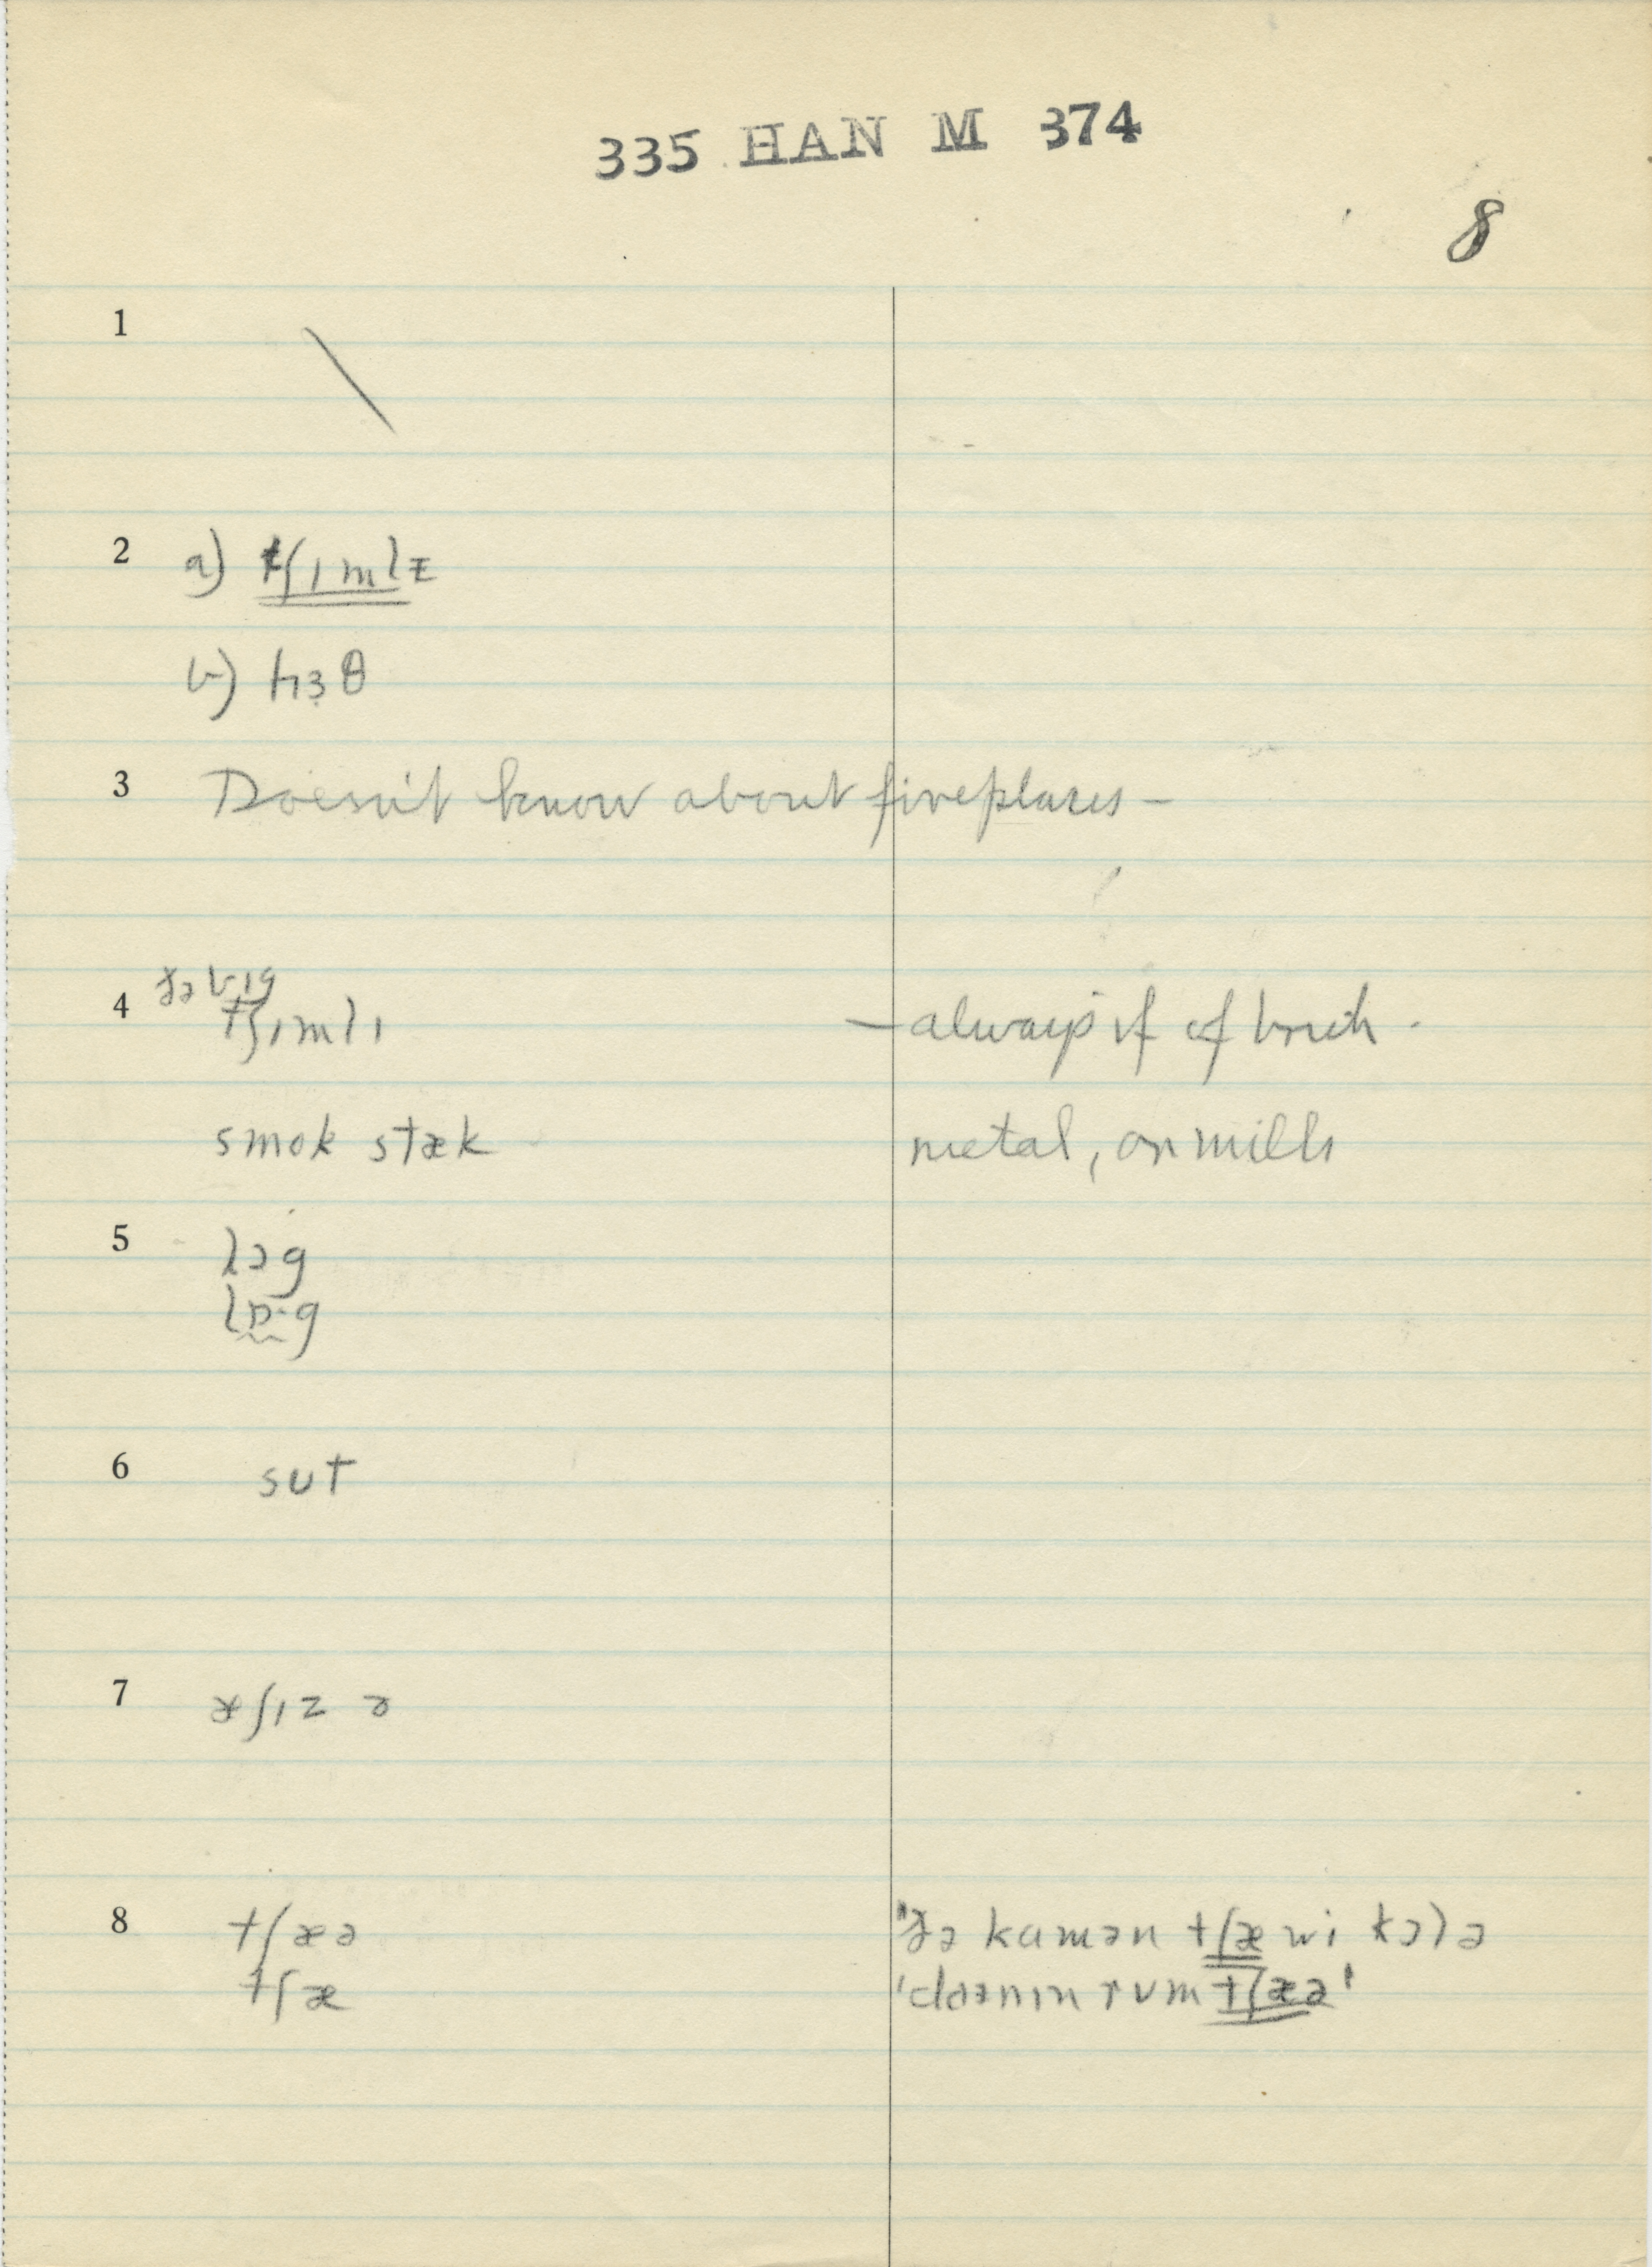 335 HAN M 374
8
1
2 a) tʃɪmlɪ
b) hɜθ
3 Doesn't know about fireplaces —
4 ðə bɪg
tʃɪmlɪ — always if of brick.
smok stæk metal, on mills
5 lɔg
lɒ·g
6 sut
7 æʃɪz
8 tʃæə "ðə kamən tʃæ wi kɔlə
tʃæ 'daɪnɪn rʊm tʃæə'